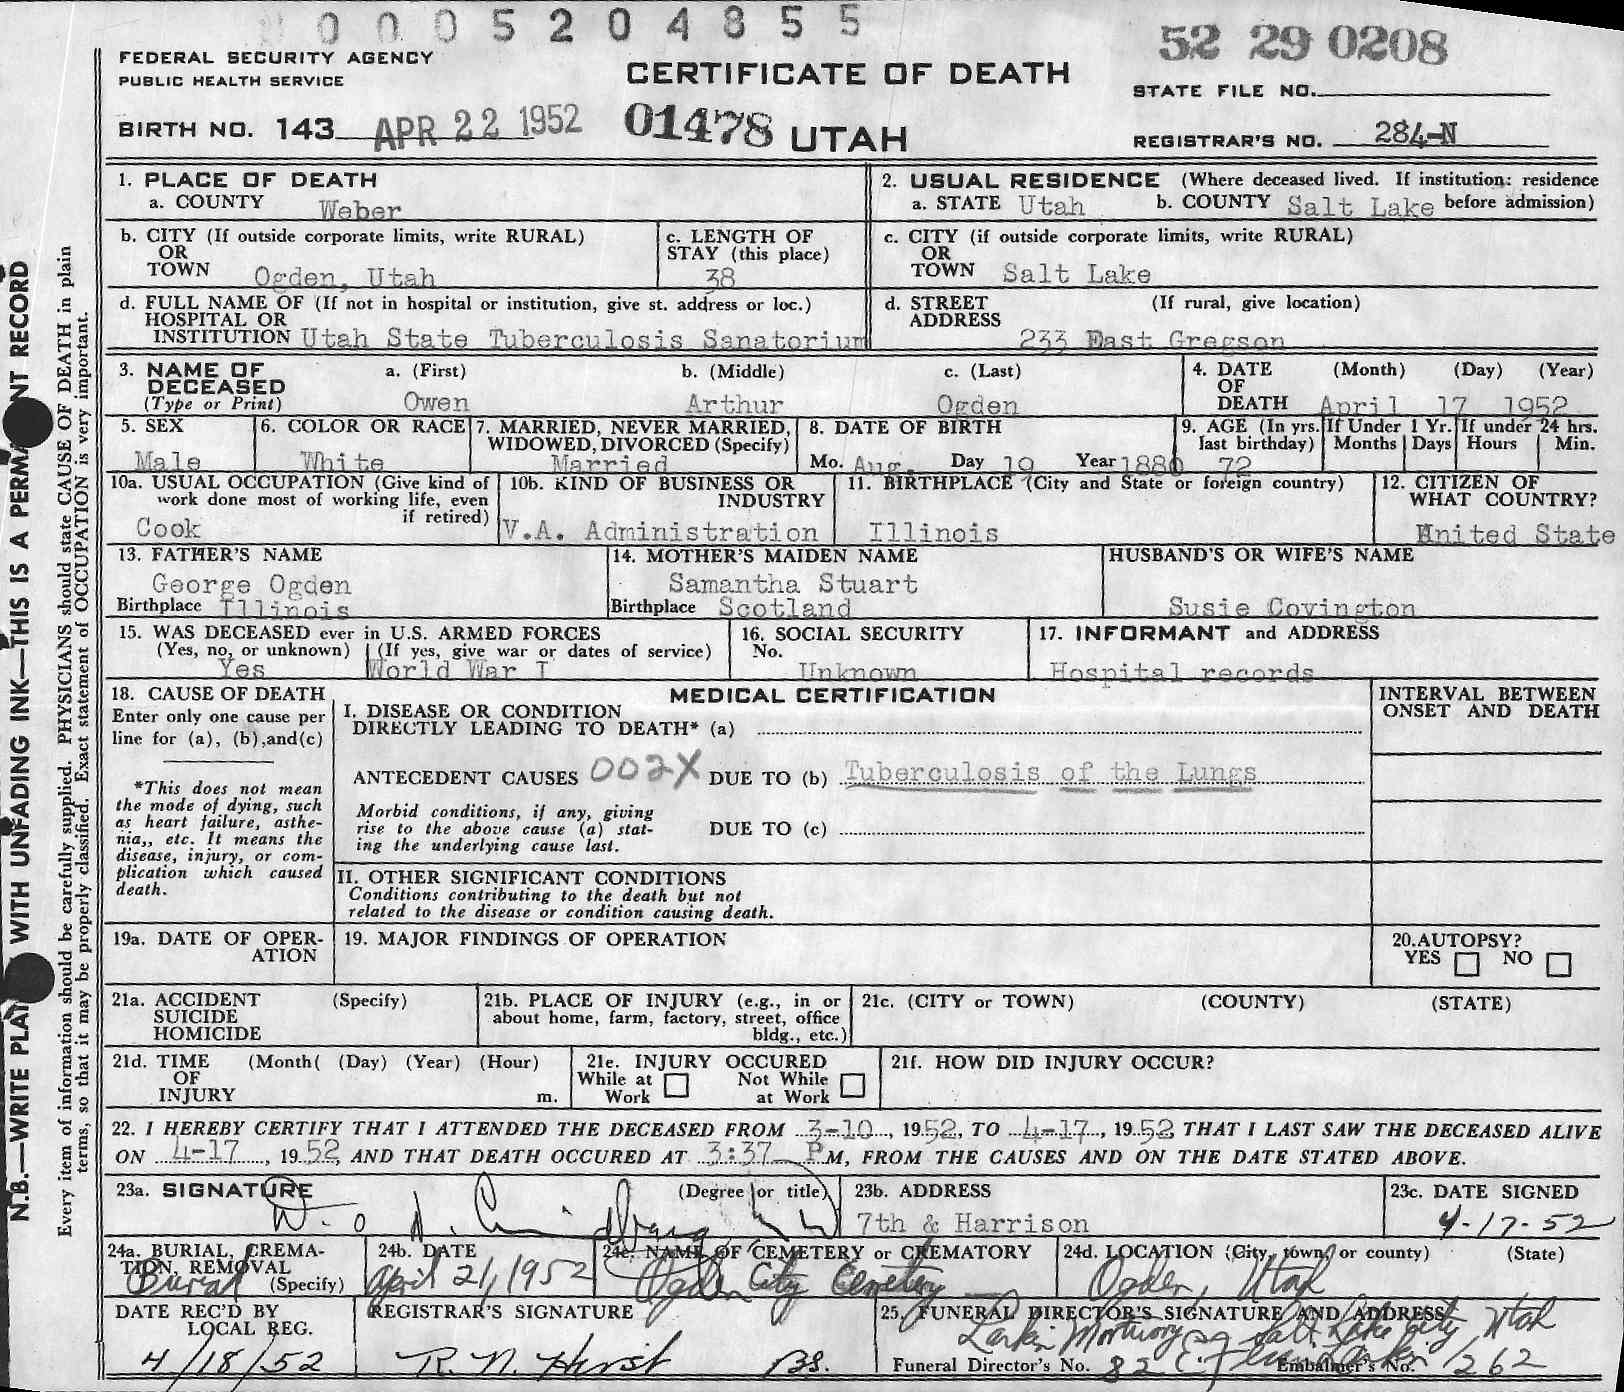 0005204855
52 29 0208
FEDERAL SECURITY AGENCY
PUBLIC HEALTH SERVICE
CERTIFICATE OF DEATH
STATE FILE NO.
BIRTH NO. 143 APR 22 1952 01478 UTAH
REGISTRAR'S NO. 284-N
1. PLACE OF DEATH
a. COUNTY Weber
2. USUAL RESIDENCE (Where deceased lived. If institution: residence
a. STATE Utah b. COUNTY Salt Lake before admission)
b. CITY (If outside corporate limits, write RURAL)
OR
TOWN Ogden, Utah
c. LENGTH OF
STAY (this place)
38
c. CITY (if outside corporate limits, write RURAL)
OR
TOWN Salt Lake
d. FULL NAME OF (If not in hospital or institution, give st. address or loc.)
HOSPITAL OR
INSTITUTION Utah State Tuberculosis Sanatorium
d. STREET (If rural, give location)
ADDRESS
233 East Gregson
3. NAME OF DECEASED
(Type or Print)
a. (First) b. (Middle) c. (Last)
Owen Arthur Ogden
4. DATE OF DEATH
(Month) (Day) (Year)
April 17 1952
5. SEX
Male
6. COLOR OR RACE
White
7. MARRIED, NEVER MARRIED,
WIDOWED, DIVORCED (Specify)
Married
8. DATE OF BIRTH
Mo. Aug. Day 19 Year 1880
9. AGE (In yrs. last birthday)
72
If Under 1 Yr.
Months Days
If under 24 hrs.
Hours Min.
10a. USUAL OCCUPATION (Give kind of
work done most of working life, even
if retired)
Cook
10b. KIND OF BUSINESS OR
INDUSTRY
V.A. Administration
11. BIRTHPLACE (City and State or foreign country)
Illinois
12. CITIZEN OF
WHAT COUNTRY?
United State
13. FATHER'S NAME
George Ogden
Birthplace Illinois
14. MOTHER'S MAIDEN NAME
Samantha Stuart
Birthplace Scotland
HUSBAND'S OR WIFE'S NAME
Susie Covington
15. WAS DECEASED ever in U.S. ARMED FORCES
(Yes, no, or unknown) (If yes, give war or dates of service)
Yes World War I
16. SOCIAL SECURITY
No.
Unknown
17. INFORMANT and ADDRESS
Hospital records
18. CAUSE OF DEATH
Enter only one cause per
line for (a), (b),and(c)
*This does not mean
the mode of dying, such
as heart failure, asthe-
nia,, etc. It means the
disease, injury, or com-
plication which caused
death.
MEDICAL CERTIFICATION
I. DISEASE OR CONDITION
DIRECTLY LEADING TO DEATH* (a)
ANTECEDENT CAUSES 002X DUE TO (b) Tuberculosis of the Lungs
Morbid conditions, if any, giving
rise to the above cause (a) stat-
ing the underlying cause last.
DUE TO (c)
INTERVAL BETWEEN
ONSET AND DEATH
II. OTHER SIGNIFICANT CONDITIONS
Conditions contributing to the death but not
related to the disease or condition causing death.
19a. DATE OF OPER-
ATION
19. MAJOR FINDINGS OF OPERATION
20. AUTOPSY?
YES NO
21a. ACCIDENT (Specify)
SUICIDE
HOMICIDE
21b. PLACE OF INJURY (e.g., in or
about home, farm, factory, street, office
bldg., etc.)
21c. (CITY or TOWN) (COUNTY) (STATE)
21d. TIME (Month( (Day) (Year) (Hour)
OF
INJURY m.
21e. INJURY OCCURED
While at Work Not While at Work
21f. HOW DID INJURY OCCUR?
22. I HEREBY CERTIFY THAT I ATTENDED THE DECEASED FROM 3-10, 1952, TO 4-17, 1952 THAT I LAST SAW THE DECEASED ALIVE
ON 4-17, 1952, AND THAT DEATH OCCURED AT 3:37 PM, FROM THE CAUSES AND ON THE DATE STATED ABOVE.
23a. SIGNATURE (Degree or title)
23b. ADDRESS
7th & Harrison
23c. DATE SIGNED
4-17-52
24a. BURIAL, CREMA-
TION, REMOVAL
(Specify)
Burial
24b. DATE
April 21, 1952
24c. NAME OF CEMETERY or CREMATORY
Ogden City Cemetery
24d. LOCATION (City, town, or county) (State)
Ogden, Utah
DATE REC'D BY
LOCAL REG.
4/18/52
REGISTRAR'S SIGNATURE
R. N. Hirst Bs.
25. FUNERAL DIRECTOR'S SIGNATURE AND ADDRESS
Larkin Mortuary Salt Lake City, Utah
Funeral Director's No. 82 Embalmer's No. 262
N.B.—WRITE PLAI WITH UNFADING INK—THIS IS A PERMA NT RECORD
Every item of information should be carefully supplied. PHYSICIANS should state CAUSE OF DEATH in plain
terms, so that it may be properly classified. Exact statement of OCCUPATION is very important.